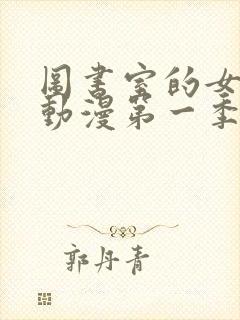 圖書室的女
動漫第一季
郭丹青